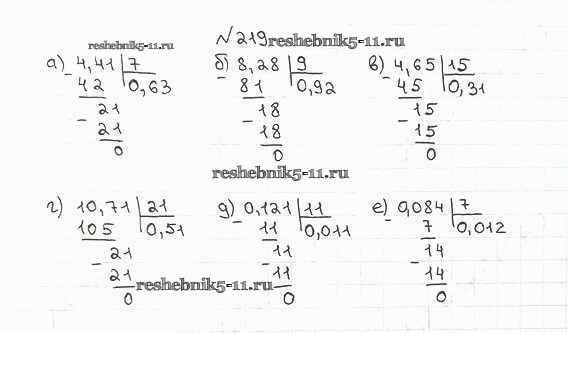 № 219
reshebnik5-11.ru reshebnik5-11.ru
а) 4,41 | 7 б) 8,28 | 9 в) 4,65 | 15
- 42 | 0,63 - 81 | 0,92 - 45 | 0,31
21 18 15
- 21 - 18 - 15
0 0 0
reshebnik5-11.ru
г) 10,71 | 21 д) 0,121 | 11 е) 0,084 | 7
105 | 0,51 - 11 | 0,011 - 7 | 0,012
21 11 14
- 21 - 11 - 14
0 reshebnik5-11.ru 0 0